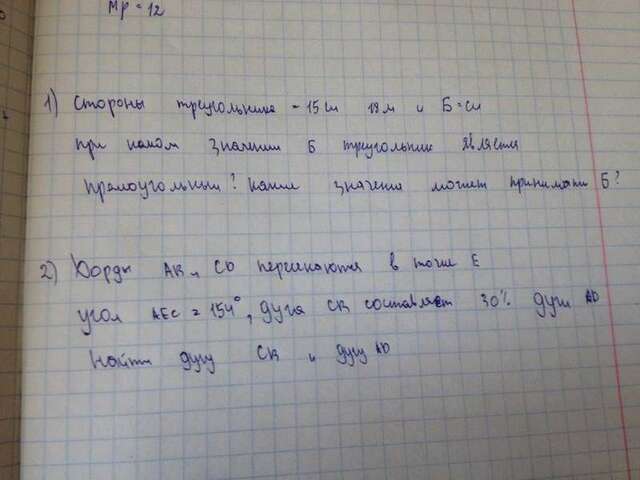 Mp = 12
1) Стороны треугольника - 15см 19м и Б=см
при каком значении Б треугольник является
прямоугольным? Какие значение может принимать Б?
2) Хорды АВ и CD пересекаются в точке Е
угол АЕС = 154°, дуга СВ составляет 30% дуги AD
Найти дугу СВ и дугу AD